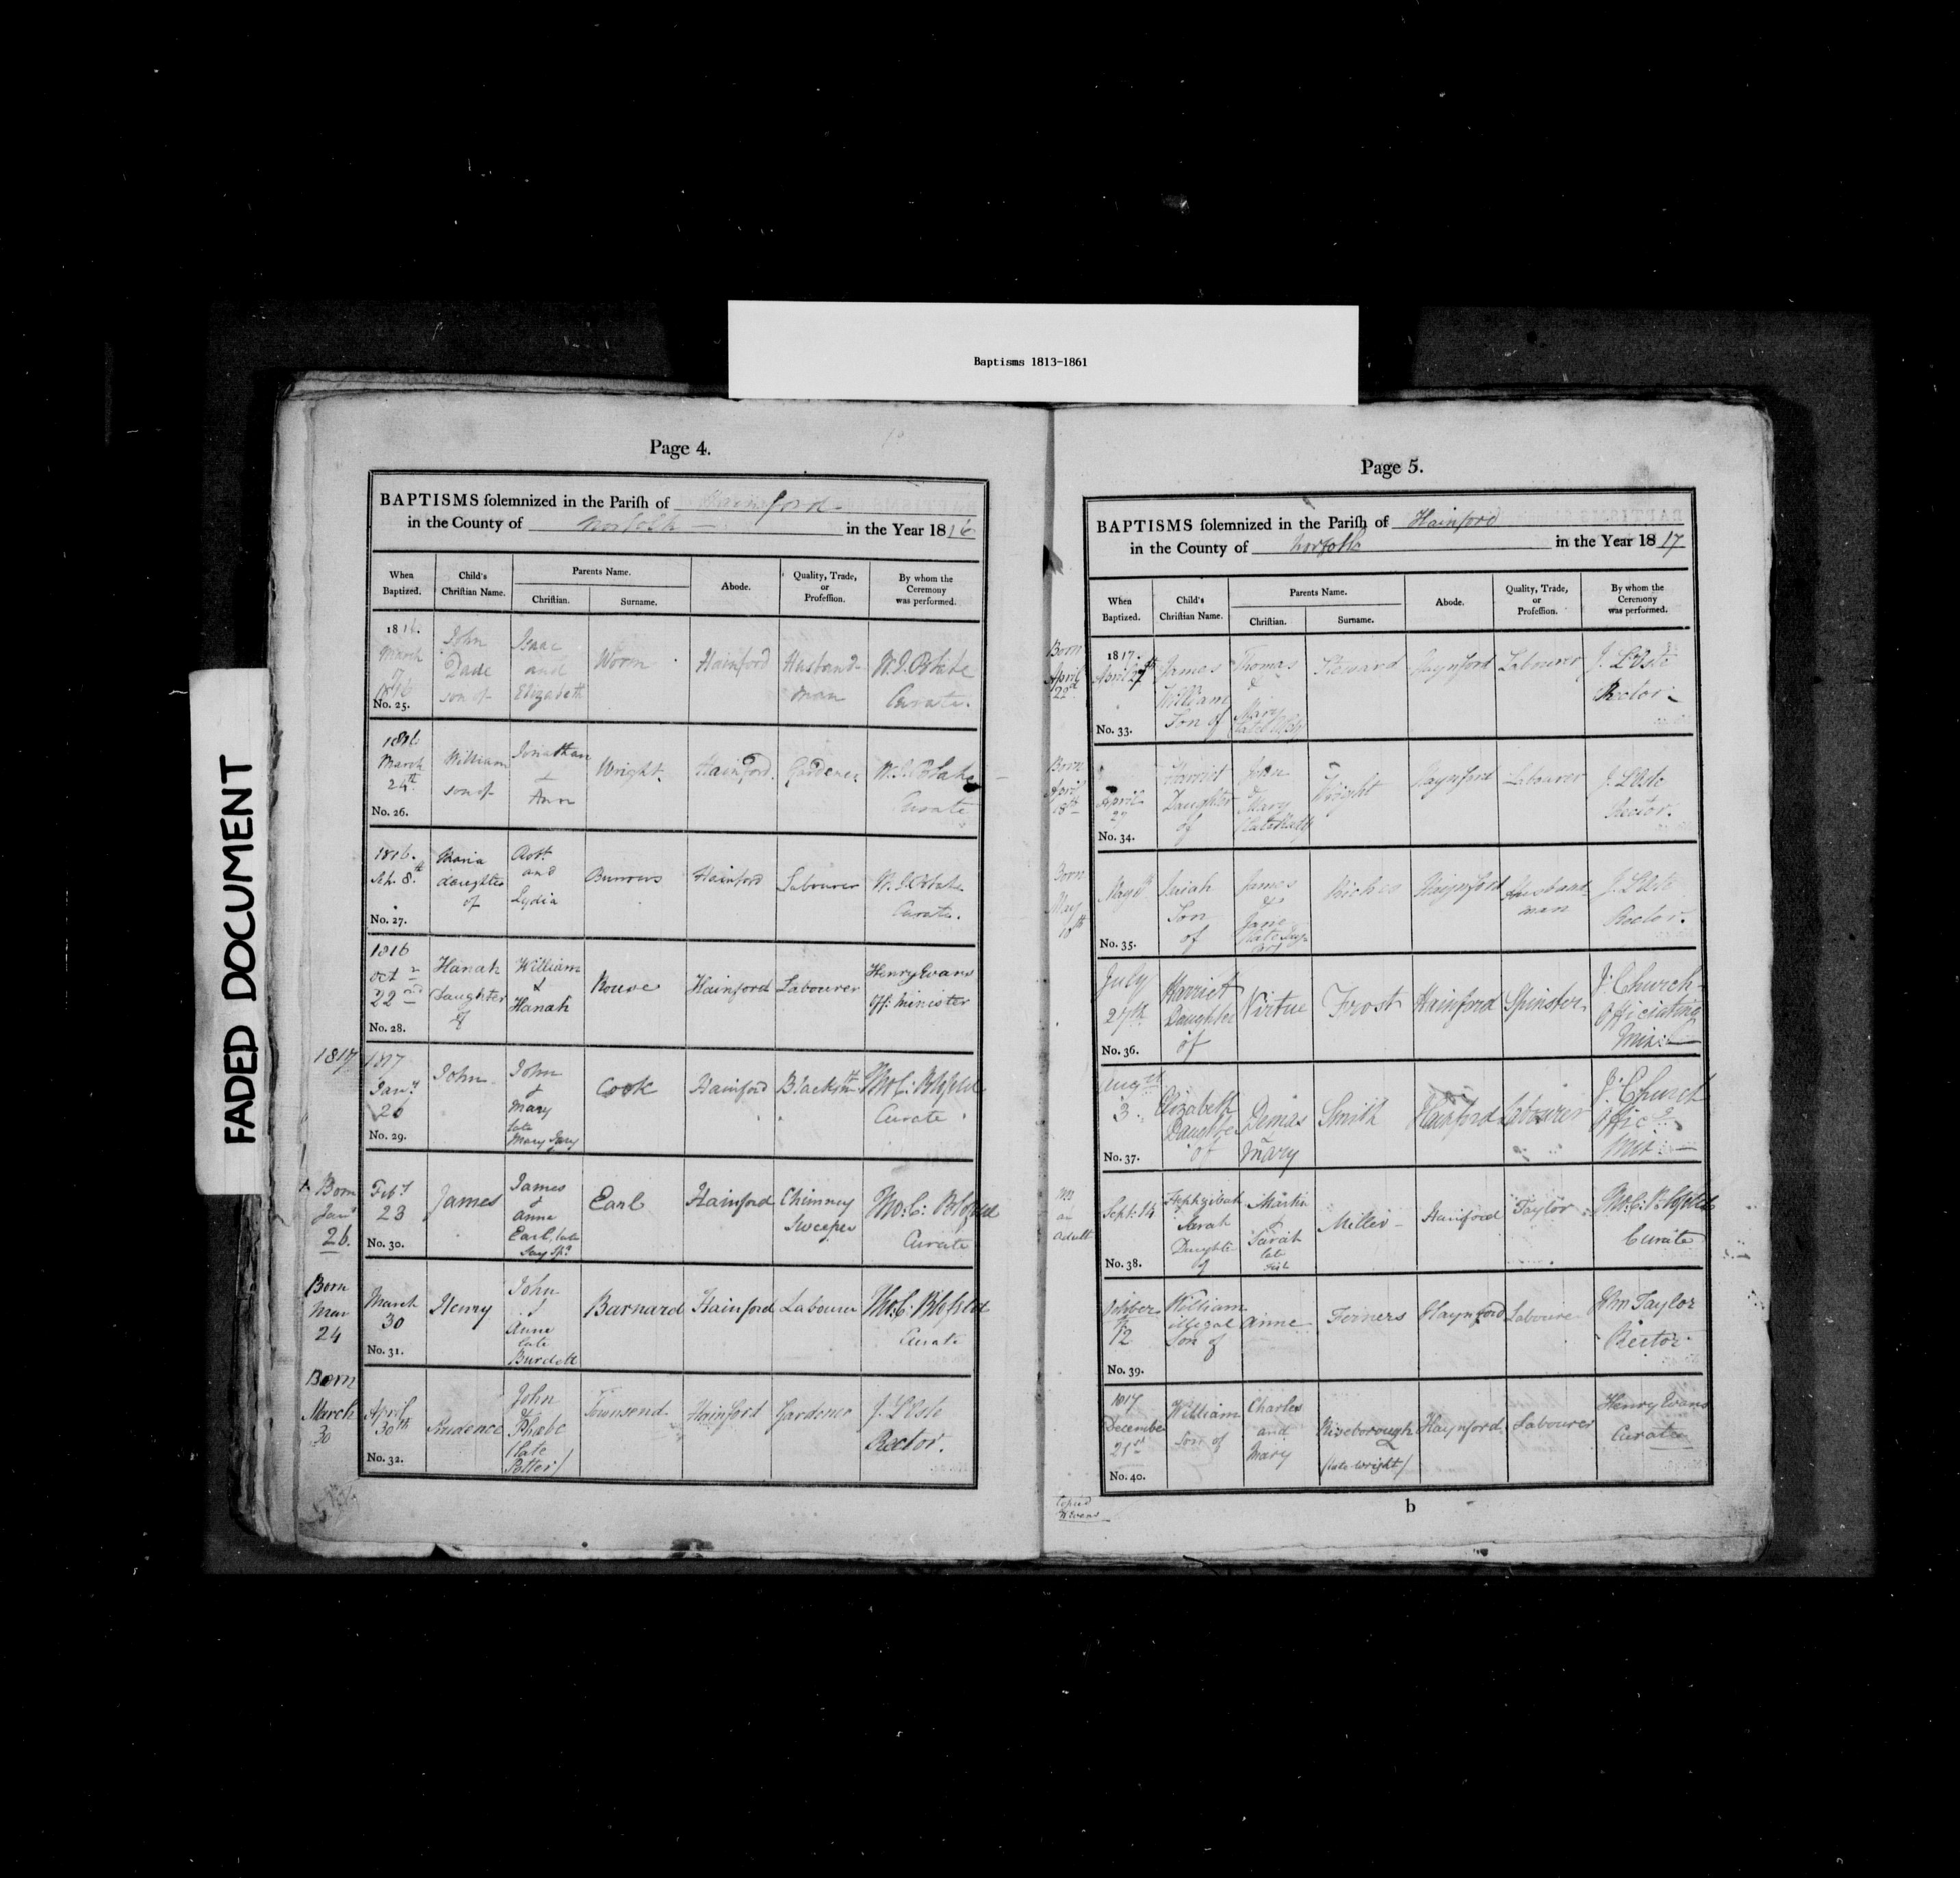 Baptisms 1813-1861
FADED DOCUMENT
Page 4.
BAPTISMS solemnized in the Parish of Hainford
in the County of Norfolk in the Year 1816
When Baptized. Child's Christian Name. Parents Name. Christian. Surname. Abode. Quality, Trade, or Profession. By whom the Ceremony was performed.
1816. March
No. 25.
John Dade son of
Isaac and Elizabeth
Hainford
Husbandman
Curate.
1816 March 24th
No. 26.
William son of
Jonathan & Ann
Wright
Hainford
Gardener
Curate
1816. Sep. 8th
No. 27.
Maria daughter of
Robt and Lydia
Hainford
Labourer
Curate.
1816 Oct 22nd
No. 28.
Hanah Daughter of
William & Hanah
Rouse
Hainford
Labourer
Henry Evans Off: Minister
1817
1817 Jany 26
No. 29.
John
John & Mary late Mary Gary
Cook
Hainford
Blacksmth
Tho. C: Blofeld Curate
Born Jany 26.
Feby 23
No. 30.
James
James & Anna Earl, late
Earl
Hainford
Chimney Sweeper
Tho. C: Blofeld Curate
Born Mar 24
March 30
No. 31.
Henry
John & Anne late
Barnard
Hainford
Labourer
Tho. C: Blofeld Curate
Born March 30
April 30th
No. 32.
Prudence
John & Phœbe (late Potter)
Townsend
Hainford
Gardener
J. L'Oste Rector.
Page 5.
BAPTISMS solemnized in the Parish of Hainford
in the County of Norfolk in the Year 1817
When Baptized. Child's Christian Name. Parents Name. Christian. Surname. Abode. Quality, Trade, or Profession. By whom the Ceremony was performed.
Born April 22d
1817. April 27th
No. 33.
James William Son of
Thomas & Mary
Haynford
Labourer
J. L'Oste Rector
Born April 18th
April 27
No. 34.
Harriet Daughter of
John & Mary
Wright
Haynford
Labourer
J. L'Oste Rector.
Born May
No. 35.
Son of
James & Jane
Riches
Haynford
Husbandman
J. L'Oste Rector.
July 27th
No. 36.
Harriet Daughter of
Virtue
Frost
Hainford
Spinster
J. Church Officiating Minr
Augst 3
No. 37.
Elizabeth Daughter of
Demas & Mary
Smith
Hainford
Labourer
J. Church Offic Minr
an adult
Sept: 14
No. 38.
Sarah Daughter of
Martin & Sarah late
Miller
Hainford
Taylor
Tho. C. Blofeld Curate
October 12
No. 39.
William illegal Son of
Anne
Haynford
Laboure
Taylor Rector
1817 December 21st
No. 40.
William Son of
Charles and Mary
Riseborough (late Wright)
Haynford
Labourer
Henry Evans Curate
Copied
b